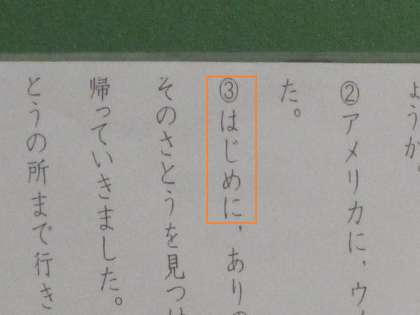 ょうか。
②アメリカに、ウ
た。
③はじめに、ありの
そのさとうを見つけ
帰っていきました。
とうの所まで行き